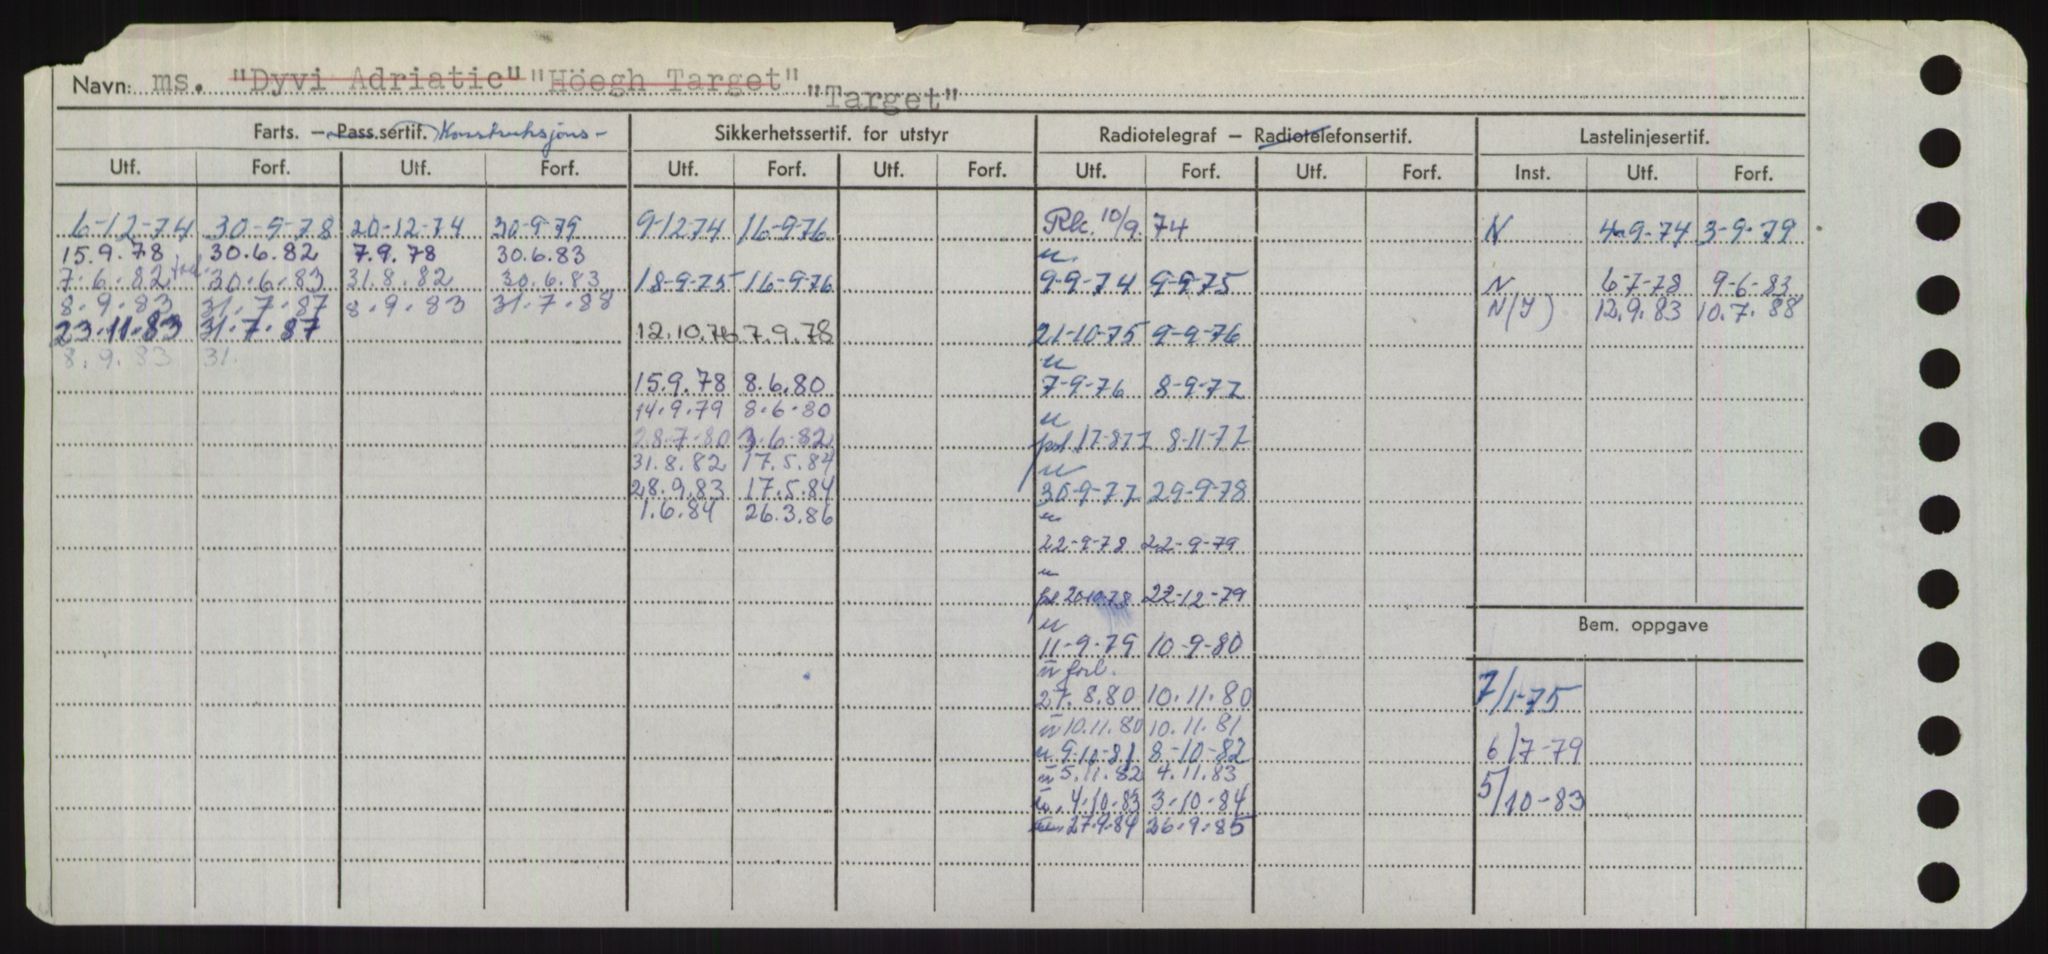 Navn: ms. "Dyvi Adriatic" "Höegh Target" "Target"
Farts. — Pass.sertif. Konstruksjons- Sikkerhetssertif. for utstyr Radiotelegraf — Radiotelefonsertif. Lastelinjesertif.
Utf. Forf. Utf. Forf. Utf. Forf. Utf. Forf. Utf. Forf. Utf. Forf. Inst. Utf. Forf.
6-12-74 30-9-78 20-12-74 30-9-79 9-12 74 16-9-76 10/9.74 N 4-9-74 3-9-79
15.9.78 30.6.82 7.9.78 30.6.83 u
7.6.82 30.6.83 31.8.82 30.6.83 18-9-75 16-9-76 9-9-74 9-9-75 N 6-7-78 9-6-83
8.9.83 31.7.87 8.9.83 31.7.88 N(Y) 12.9.83 10.7.88
23.11.83 31.7.87 12.10.76 7.9.78 21-10-75 9-9-76
8.9.83 31. u
15.9.78 8.6.80 7-9-76 8-9-77
14.9.79 8.6.80 u
28.7.80 3.6.82 17-8-77 8-11-77
31.8.82 17.5.84 u
28.9.83 17.5.84 30-9-77 29-9-78
1.6.84 26.3.86 u
22-9-78 22-9-79
u
20-10-78 22-12-79
u Bem. oppgave
11-9-79 10-9-80
u forl.
27.8.80 10.11.80 7/1-75
u 10.11.80 10.11.81
u 9-10-81 8-10-82 6/7-79
u 5.11.82 4.11.83
4.10.83 3-10-84 5/10-83
27.9.84 26.9.85